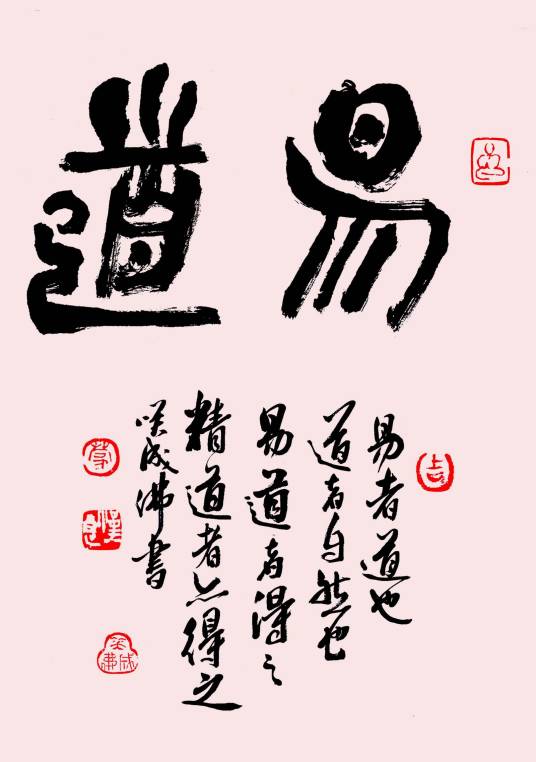 易道
易者道也
道者自然也
易道者得之
精道者亦得之
咲成佛書
吉